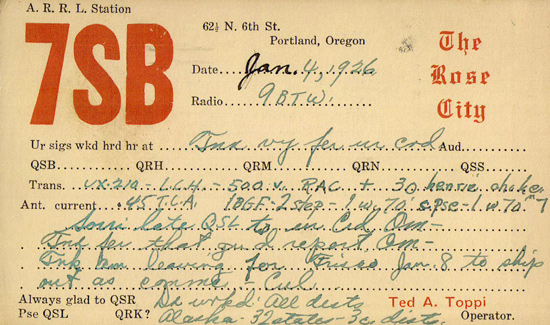 A. R. R. L. Station
7SB
62½ N. 6th St.
Portland, Oregon
The
Rose
City
Date....Jan. 4, 1926
Radio......9BTW
Ur sigs wkd hrd hr at Tnx vy fer ur crd Aud
QSB QRH QRM QRN QSS
Trans. UX-210 - 500 v. RAC + 30 henrie choke
Ant. current .45 T.C.A. 1BGF-2 step - 1 w. 70'
Sorri late QSL to ur Crd Om -
Tnk fer that gud report Om -
Tnk am leaving for Frisco Jan. 8 to ship
out as comml - Cul
Always glad to QSR Da wrkd all dists
Pse QSL QRK? Alaska - 32 states - 3c dists.
Ted A. Toppi
Operator.